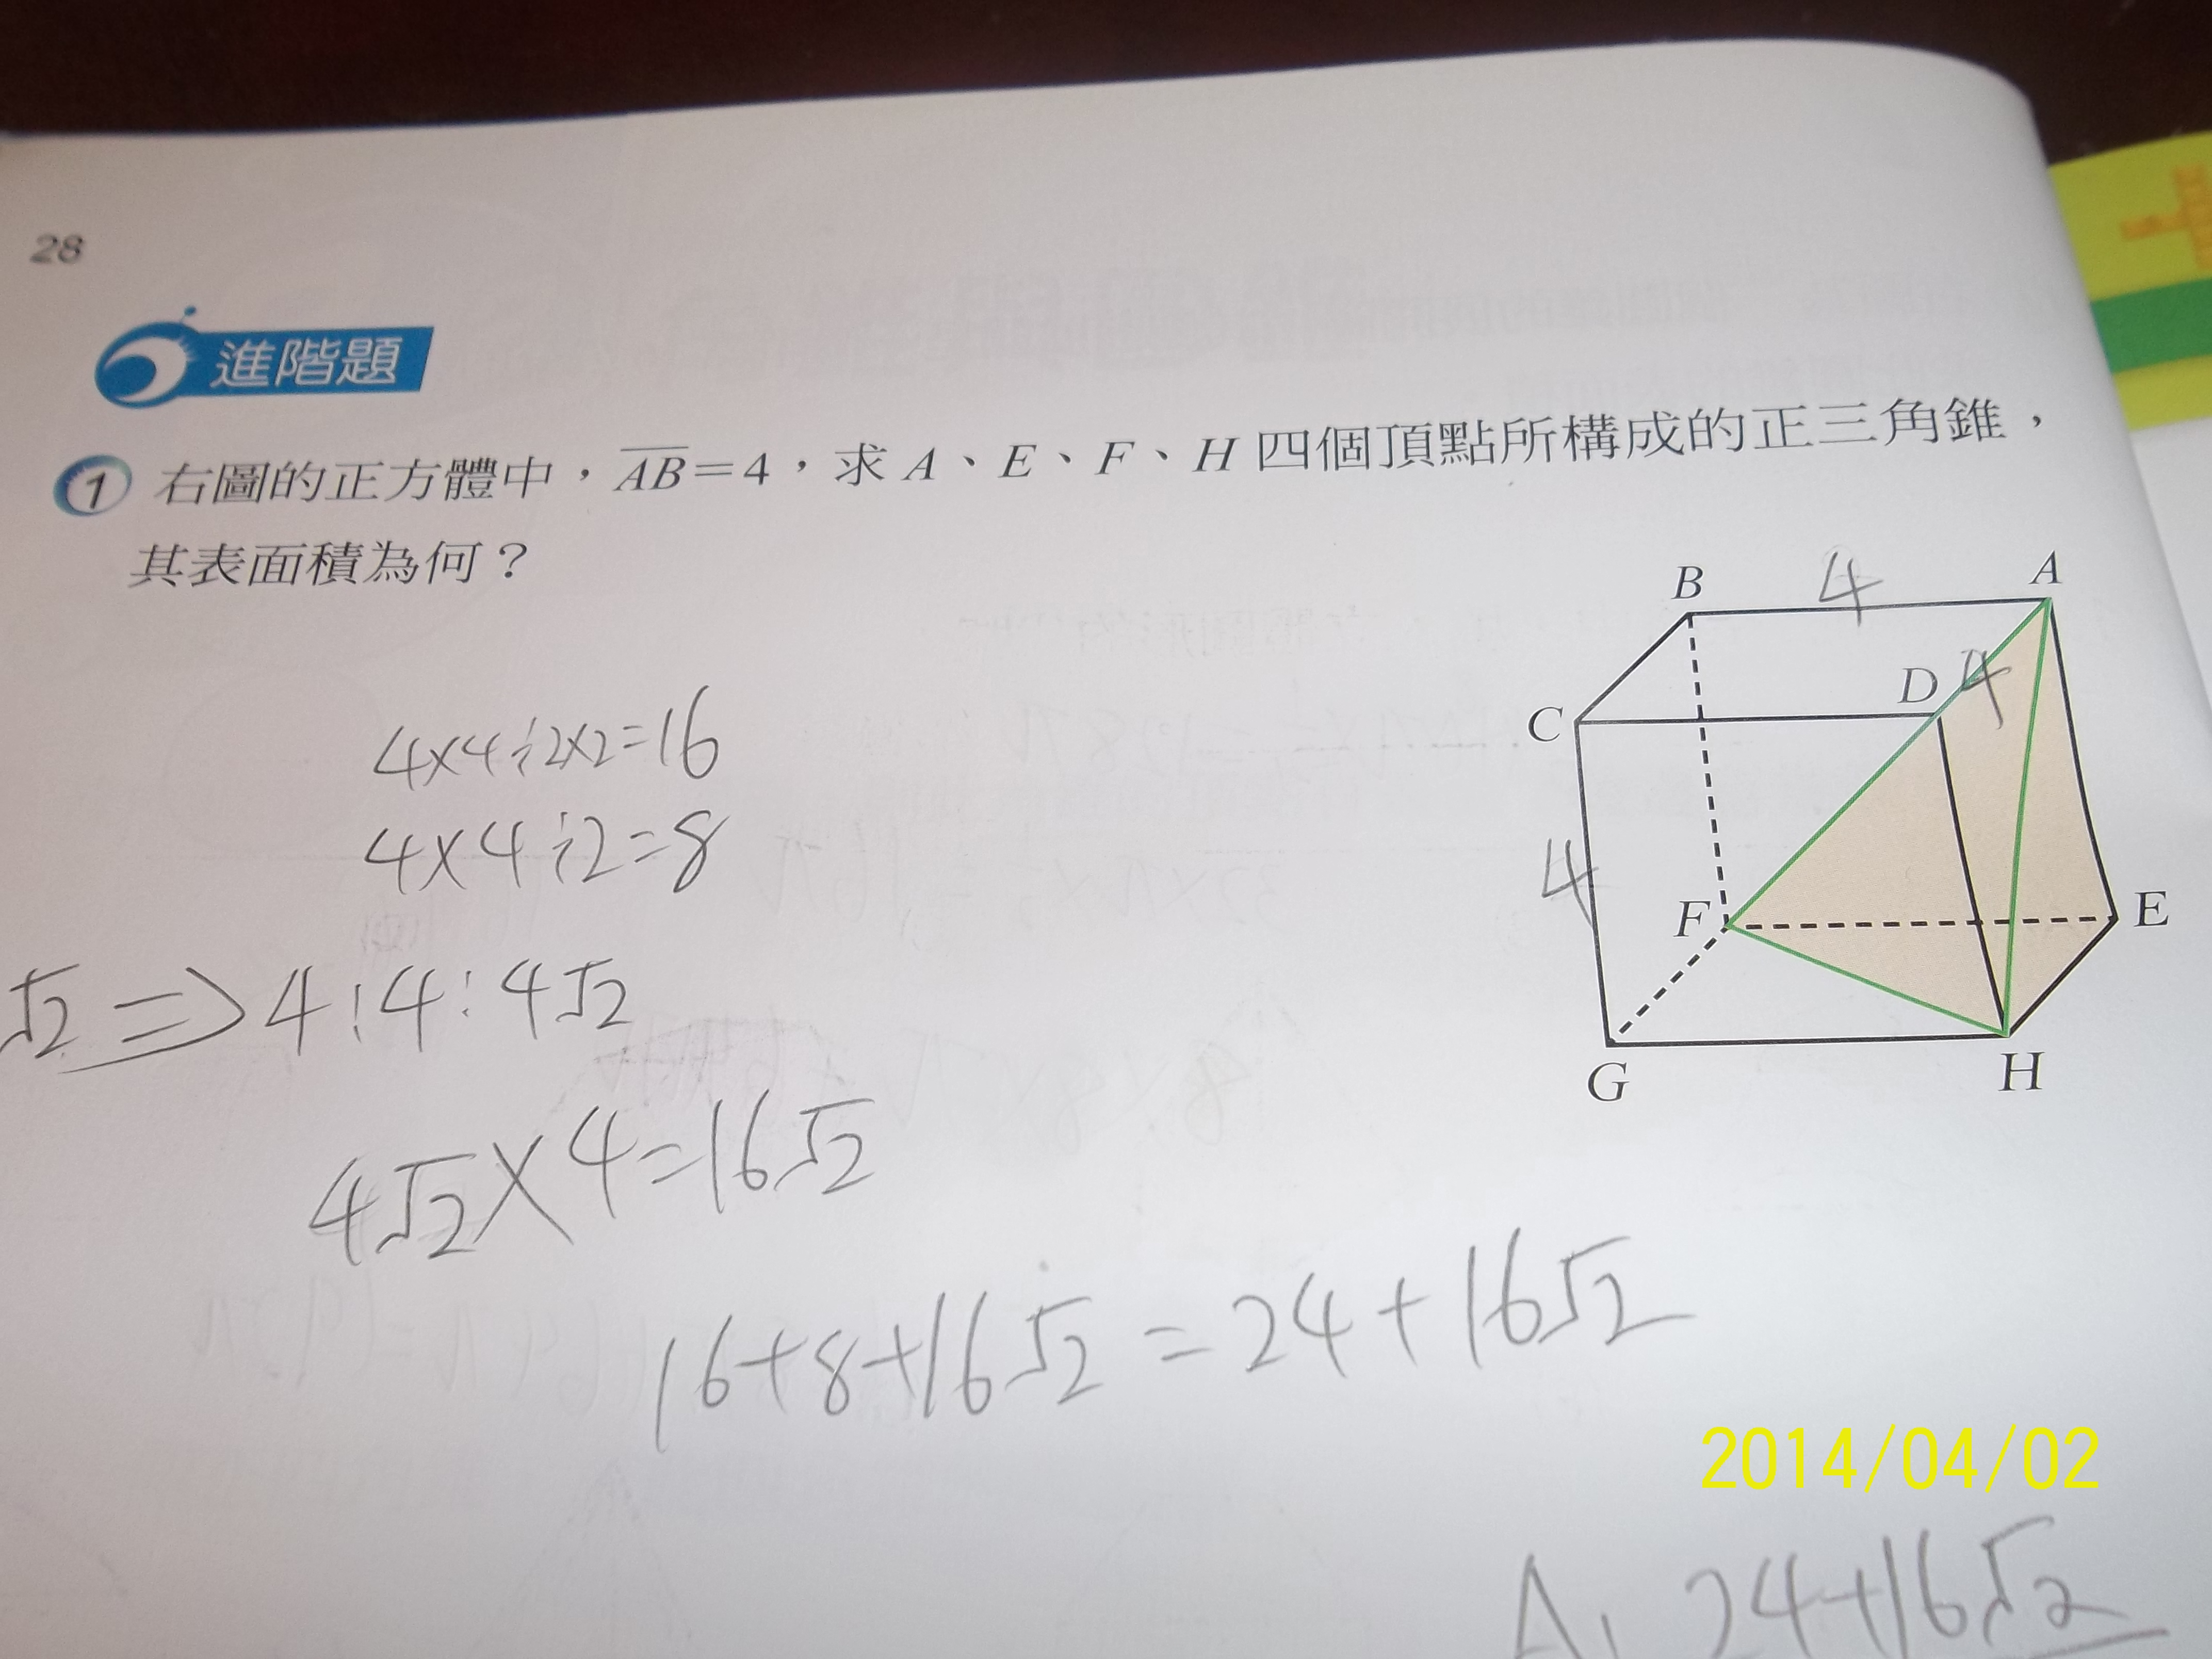 28
進階題
1 右圖的正方體中，AB=4，求 A、E、F、H 四個頂點所構成的正三角錐，
其表面積為何？
B 4 A
C D 4
4 F E
G H
4×4÷2×2=16
4×4÷2=8
√2 ⇒ 4:4:4√2
4√2×4=16√2
16+8+16√2=24+16√2
2014/04/02
A: 24+16√2